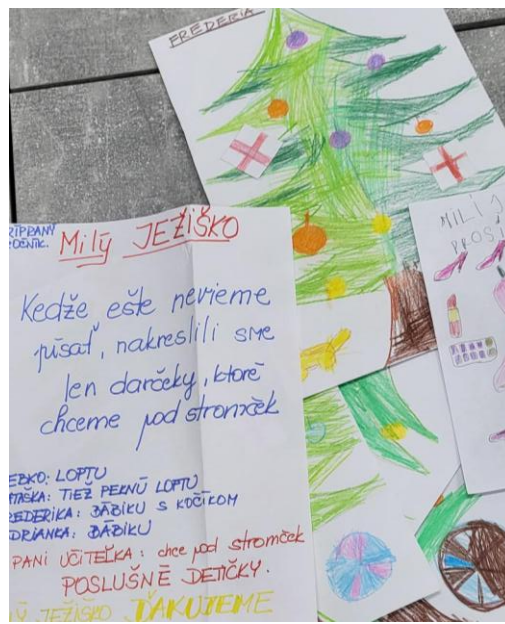 FREDERIA
Milý JEŽIŠKO
Kedže ešte nevieme
písať, nakreslili sme
len darčeky, ktoré
chceme pod stromček
EBKO: LOPTU
TAŠKA: TIEŽ PEKNÚ LOPTU
EDERIKA: BÁBIKU S KOČÍKOM
DRIANKA: BÁBIKU
PANI UČITEĽKA: chce pod stromček
POSLUŠNÉ DETIČKY.
Ý JEŽIŠKO ĎAKUJEME
MILÍ J
PROSI